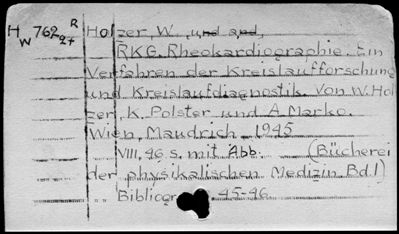 H W 762 27 R Holzer, W. und and,
RKG. Rheokardiographie. Ein
Verfahren der Kreislaufforschung
und Kreislaufdiagnostik. Von W. Hol
zer, K. Polster und A. Marko.
Wien, Maudrich 1945
VIII, 96 s. mit Abb. (Bücherei
der physikalischen Medizin. Bd. 1)
Bibliogr 45-96